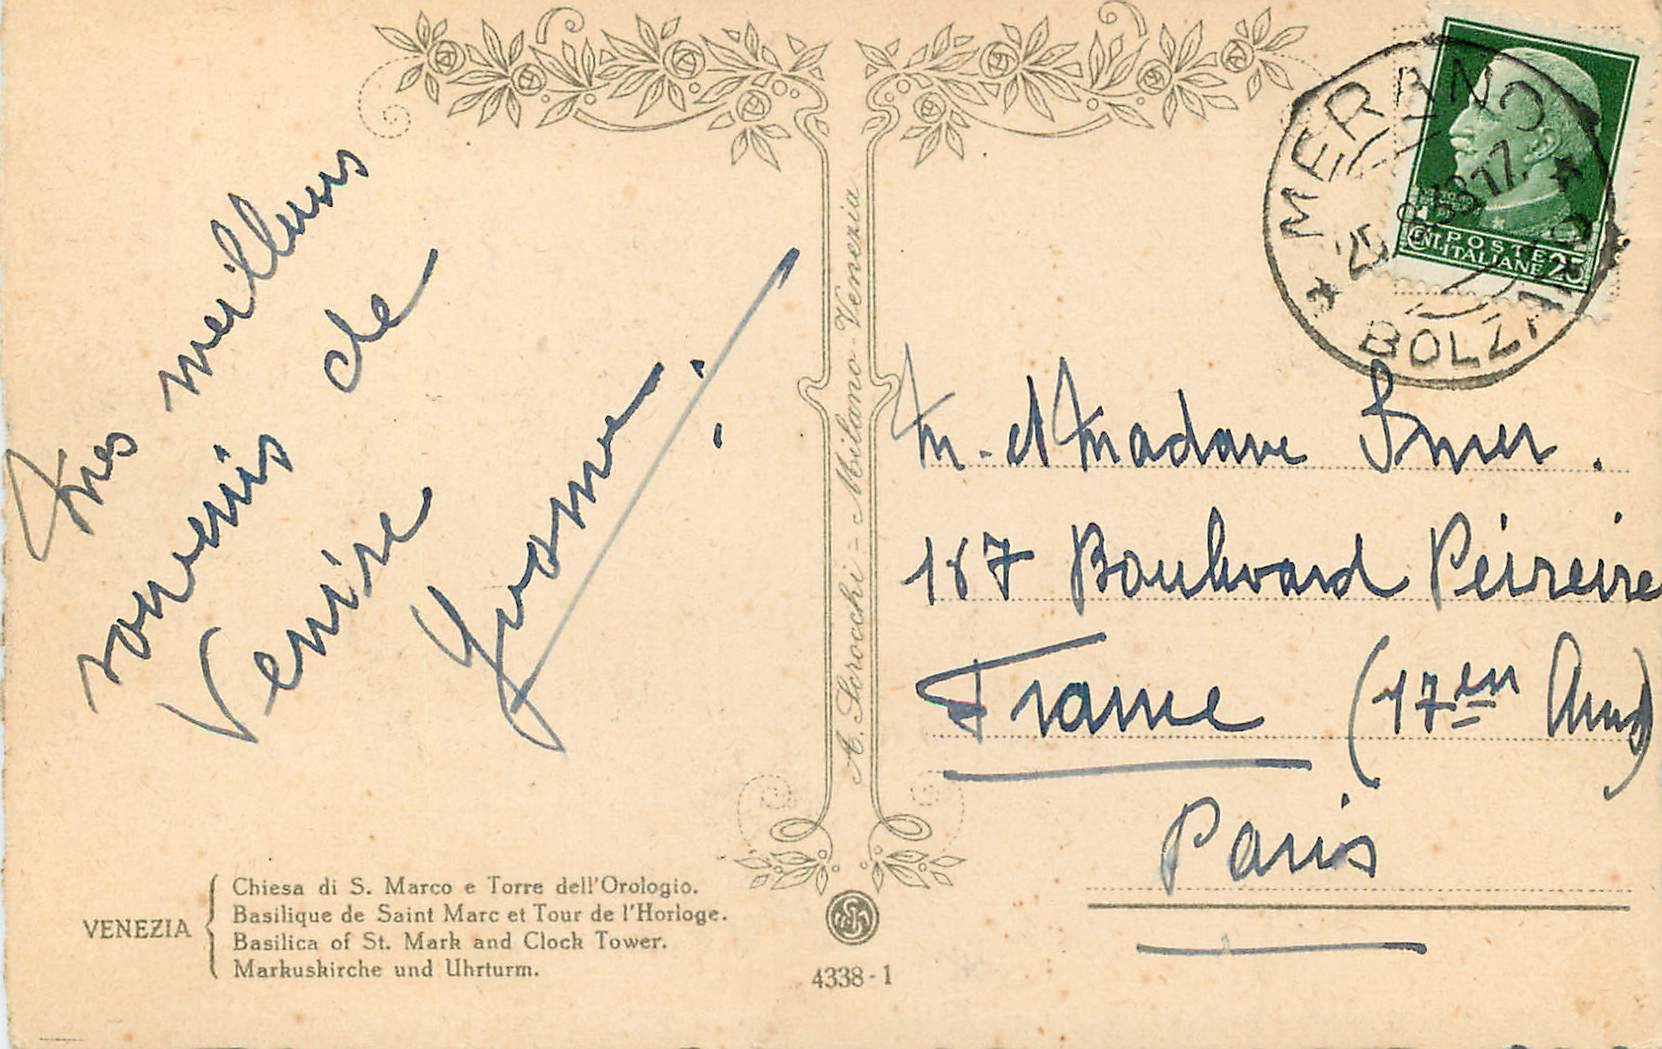 Mes meilleurs
souvenirs de
Venise
Yvonne
A. Scrocchi - Milano-Venezia
MERANO
25 8 38 17
BOLZA
POSTE
CENT. ITALIANE 25
M. et Madame
187 Boulevard Péireire
France (17en Arrd)
Paris
VENEZIA
Chiesa di S. Marco e Torre dell'Orologio.
Basilique de Saint Marc et Tour de l'Horloge.
Basilica of St. Mark and Clock Tower.
Markuskirche und Uhrturm.
4338-1